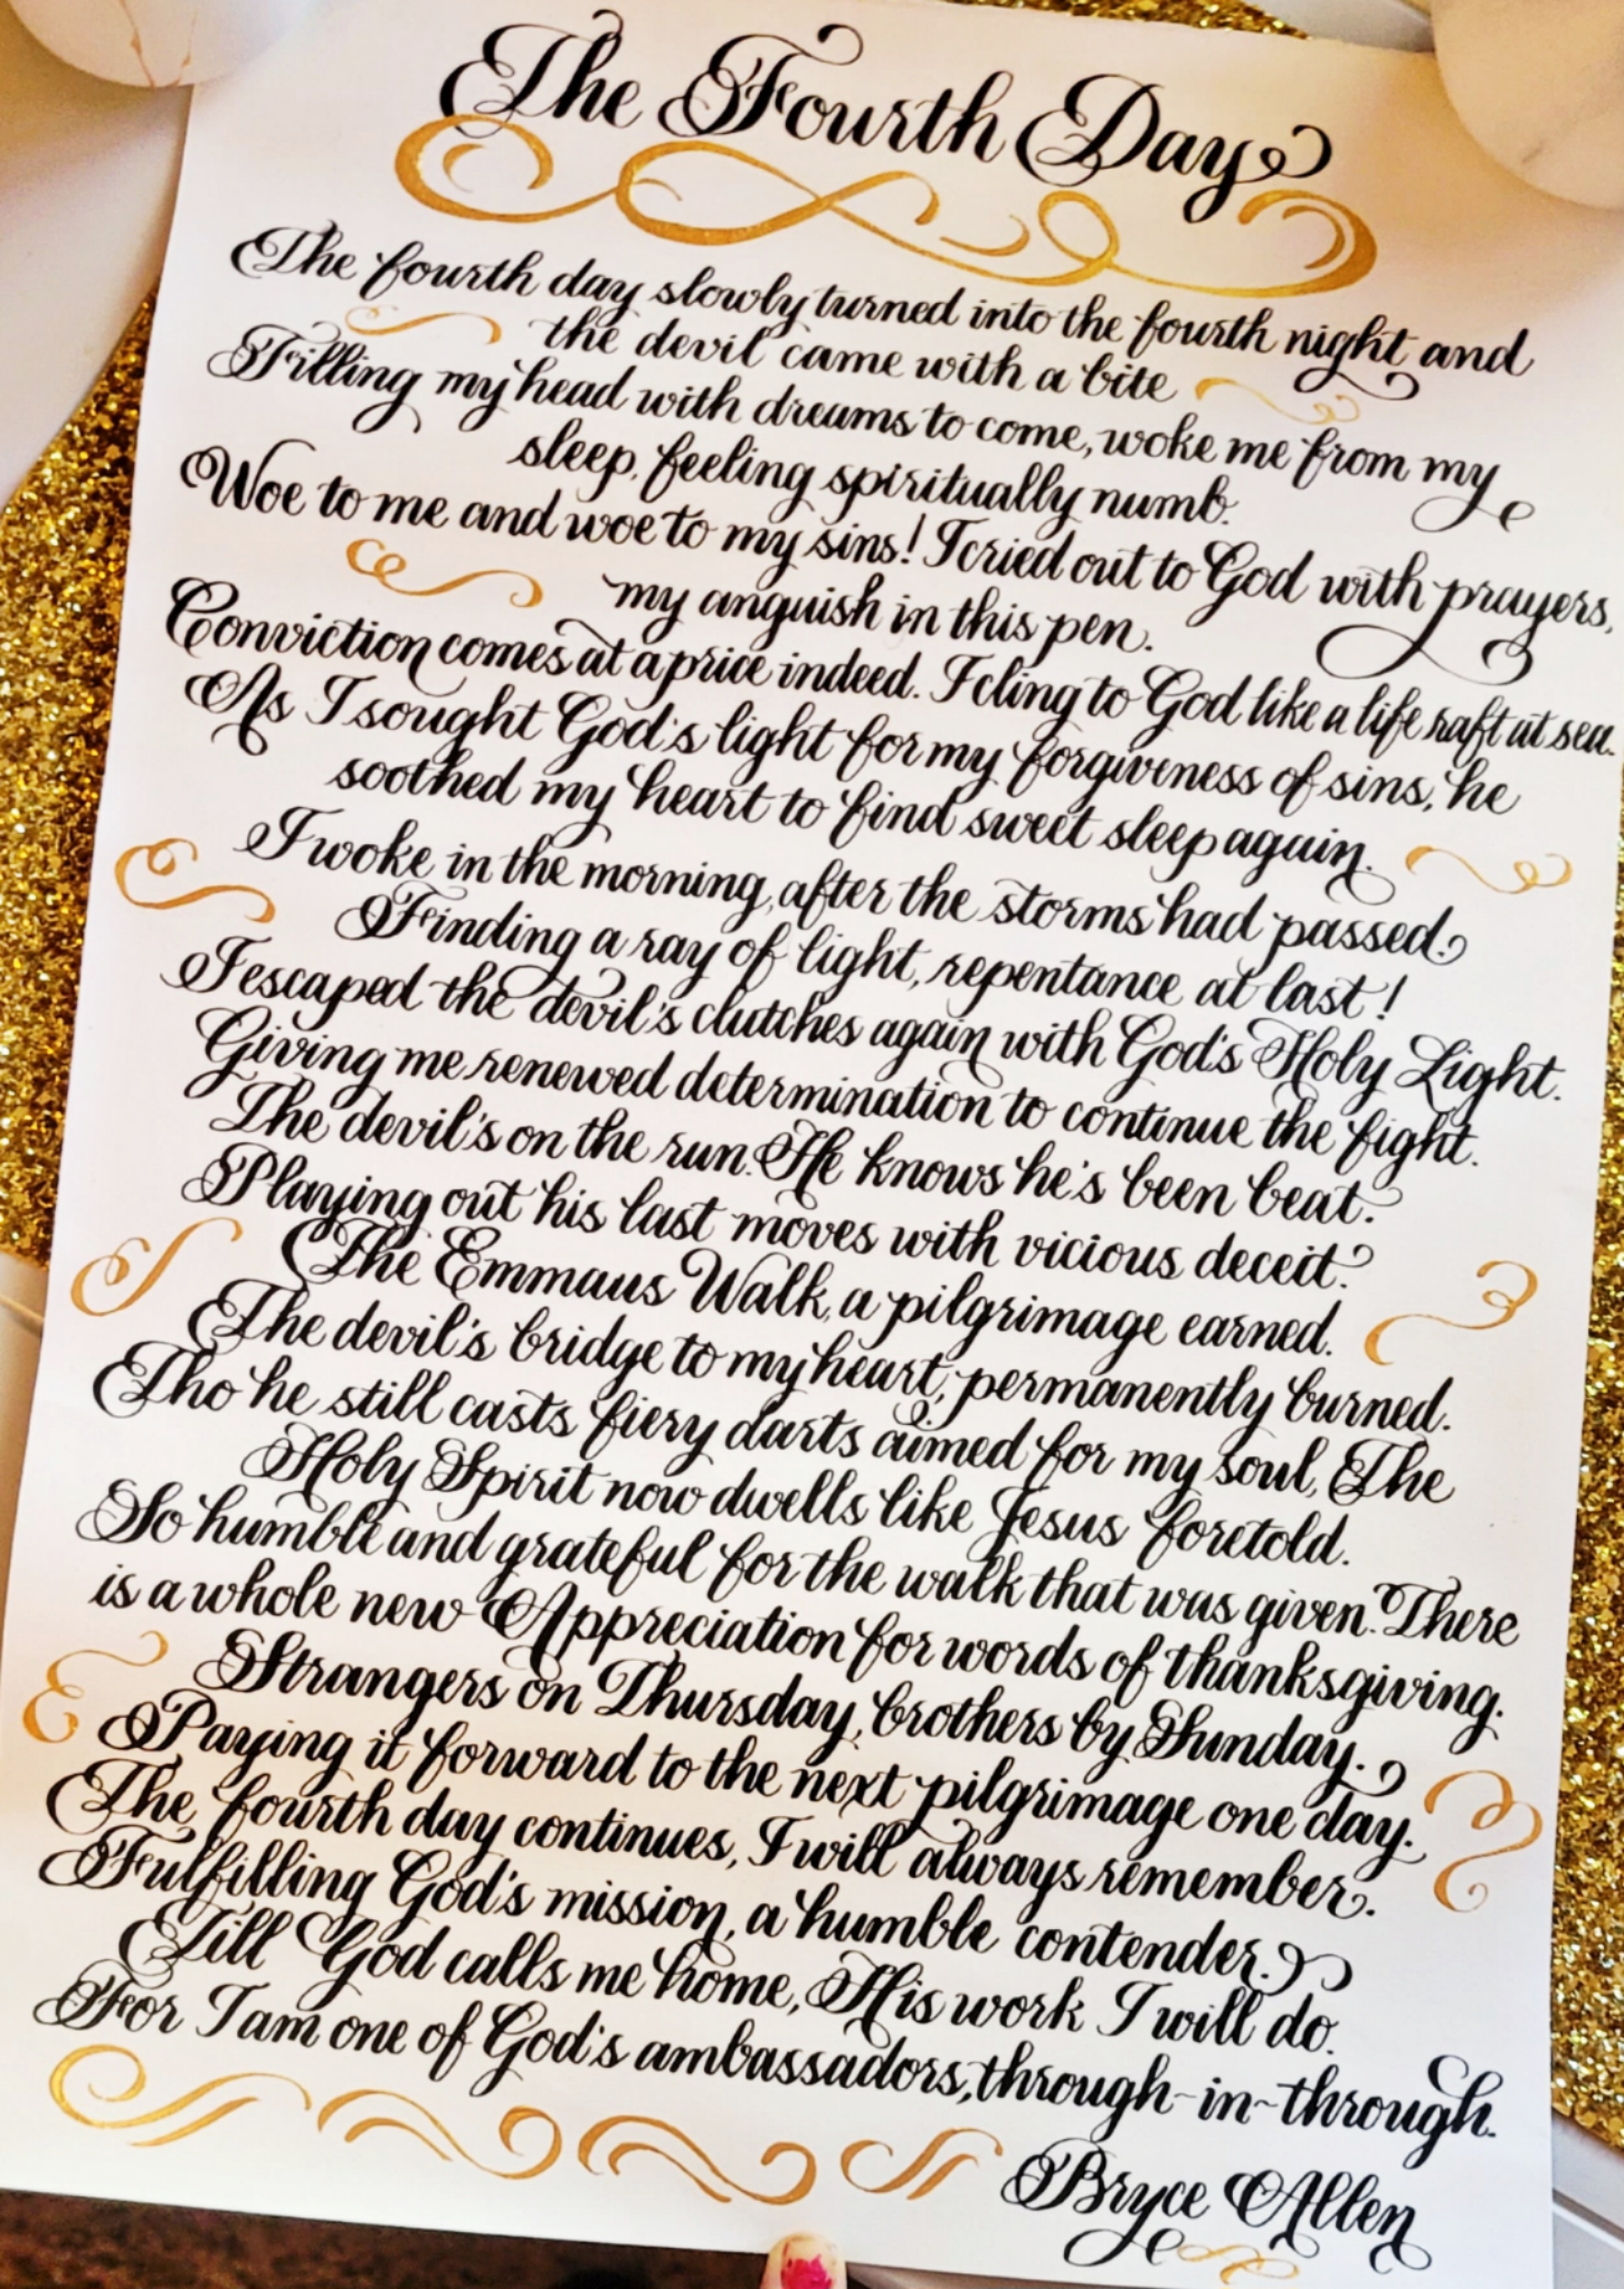 The Fourth Day
The fourth day slowly turned into the fourth night and
the devil came with a bite
Filling my head with dreams to come, woke me from my
sleep, feeling spiritually numb.
Woe to me and woe to my sins! I cried out to God with prayers,
my anguish in this pen.
Conviction comes at a price indeed. I cling to God like a life raft at sea.
As I sought God's light for my forgiveness of sins, he
soothed my heart to find sweet sleep again.
I woke in the morning, after the storms had passed.
Finding a ray of light, repentance at last!
I escaped the devil's clutches again with God's Holy Light.
Giving me renewed determination to continue the fight.
The devil's on the run. He knows he's been beat.
Playing out his last moves with vicious deceit.
The Emmaus Walk, a pilgrimage earned.
The devil's bridge to my heart, permanently burned.
Tho he still casts fiery darts aimed for my soul, The
Holy Spirit now dwells like Jesus foretold.
So humble and grateful for the walk that was given. There
is a whole new Appreciation for words of thanksgiving.
Strangers on Thursday, brothers by Sunday.
Paying it forward to the next pilgrimage one day.
The fourth day continues, I will always remember.
Fulfilling God's mission, a humble contender.
Till God calls me home, His work I will do.
For I am one of God's ambassadors, through-in-through.
Bryce Allen